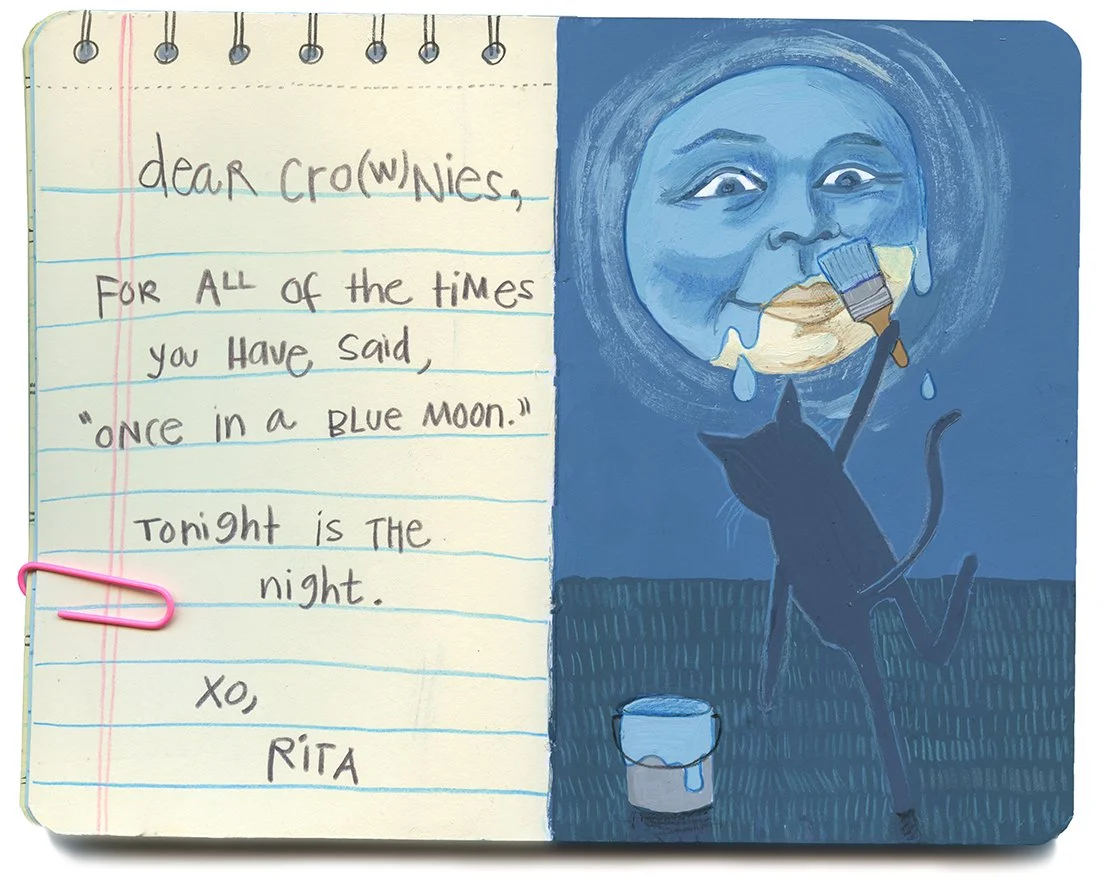 dear Cro(w)nies,
FOR ALL of the times
you Have Said,
"ONCE in a BLUE MOON."
Tonight is THE
night.
XO,
RITA